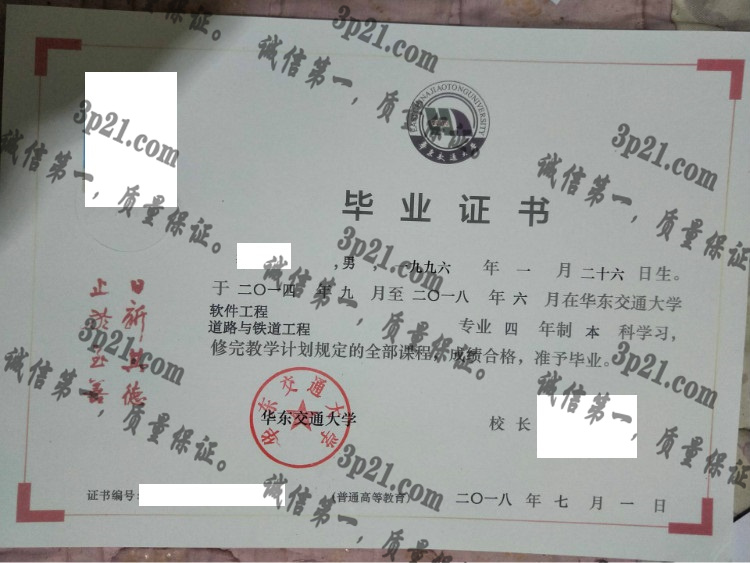 3p21.com
诚信第一，质量保证。
3p21.com
诚信第一，质量保证。
3p21.com
诚信第一，质量保证。
EAST CHINA JIAOTONG UNIVERSITY
华东交通大学
毕业证书
，男，九九六年一月二十六日生。
于二〇一四年九月至二〇一八年六月在华东交通大学
软件工程
道路与铁道工程 专业四年制本科学习，
修完教学计划规定的全部课程，成绩合格，准予毕业。
日新其德
止於至善
3p21.com
诚信第一，质量保证。
3p21.com
诚信第一，质量保证。
3p21.com
诚信第一，质量保证。
华东交通大学
华东交通大学
校长
证书编号：
（普通高等教育）
二〇一八年七月一日
3p21.com
诚信第一，质量